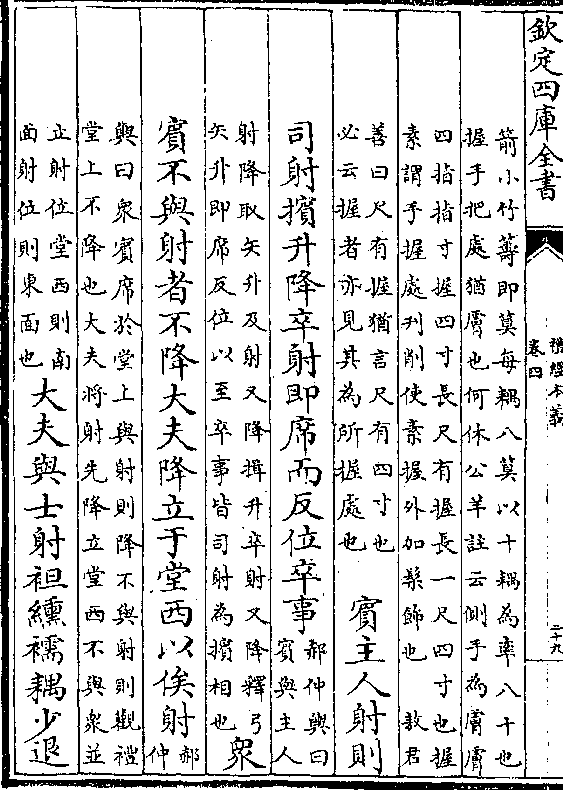 欽定四庫全書
禮經本義
卷四
二十九
箭小竹籌即筭每耦八筭以十耦為率八十也
握手把處猶膚也何休公羊註云側手為膚膚
四指指寸握四寸長尺有握長一尺四寸也握
素謂手握處刋削使素握外加髹飾也 敖君
善曰尺有握猶言尺有四寸也
必云握者亦見其為所握處也
賓主人射則
司射擯升降卒射即席而反位卒事
郝仲輿曰
賓與主人
射降取矢升及射又降揖升卒射又降釋弓
矢升即席反位以至卒事皆司射為擯相也
衆
賓不與射者不降大夫降立于堂西以俟射
郝
仲
輿曰衆賓席於堂上與射則降不與射則觀禮
堂上不降也大夫將射先降立堂西不與衆並
立射位堂西則南
面射位則東面也
大夫與士射袒纁襦耦少退